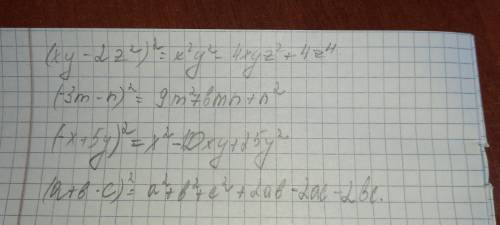 (xy - 2z²)² = x²y² - 4xyz² + 4z⁴
(-3m - n)² = 9m² + 6mn + n²
(-x + 5y)² = x² - 10xy + 25y²
(a + b - c)² = a² + b² + c² + 2ab - 2ac - 2bc.